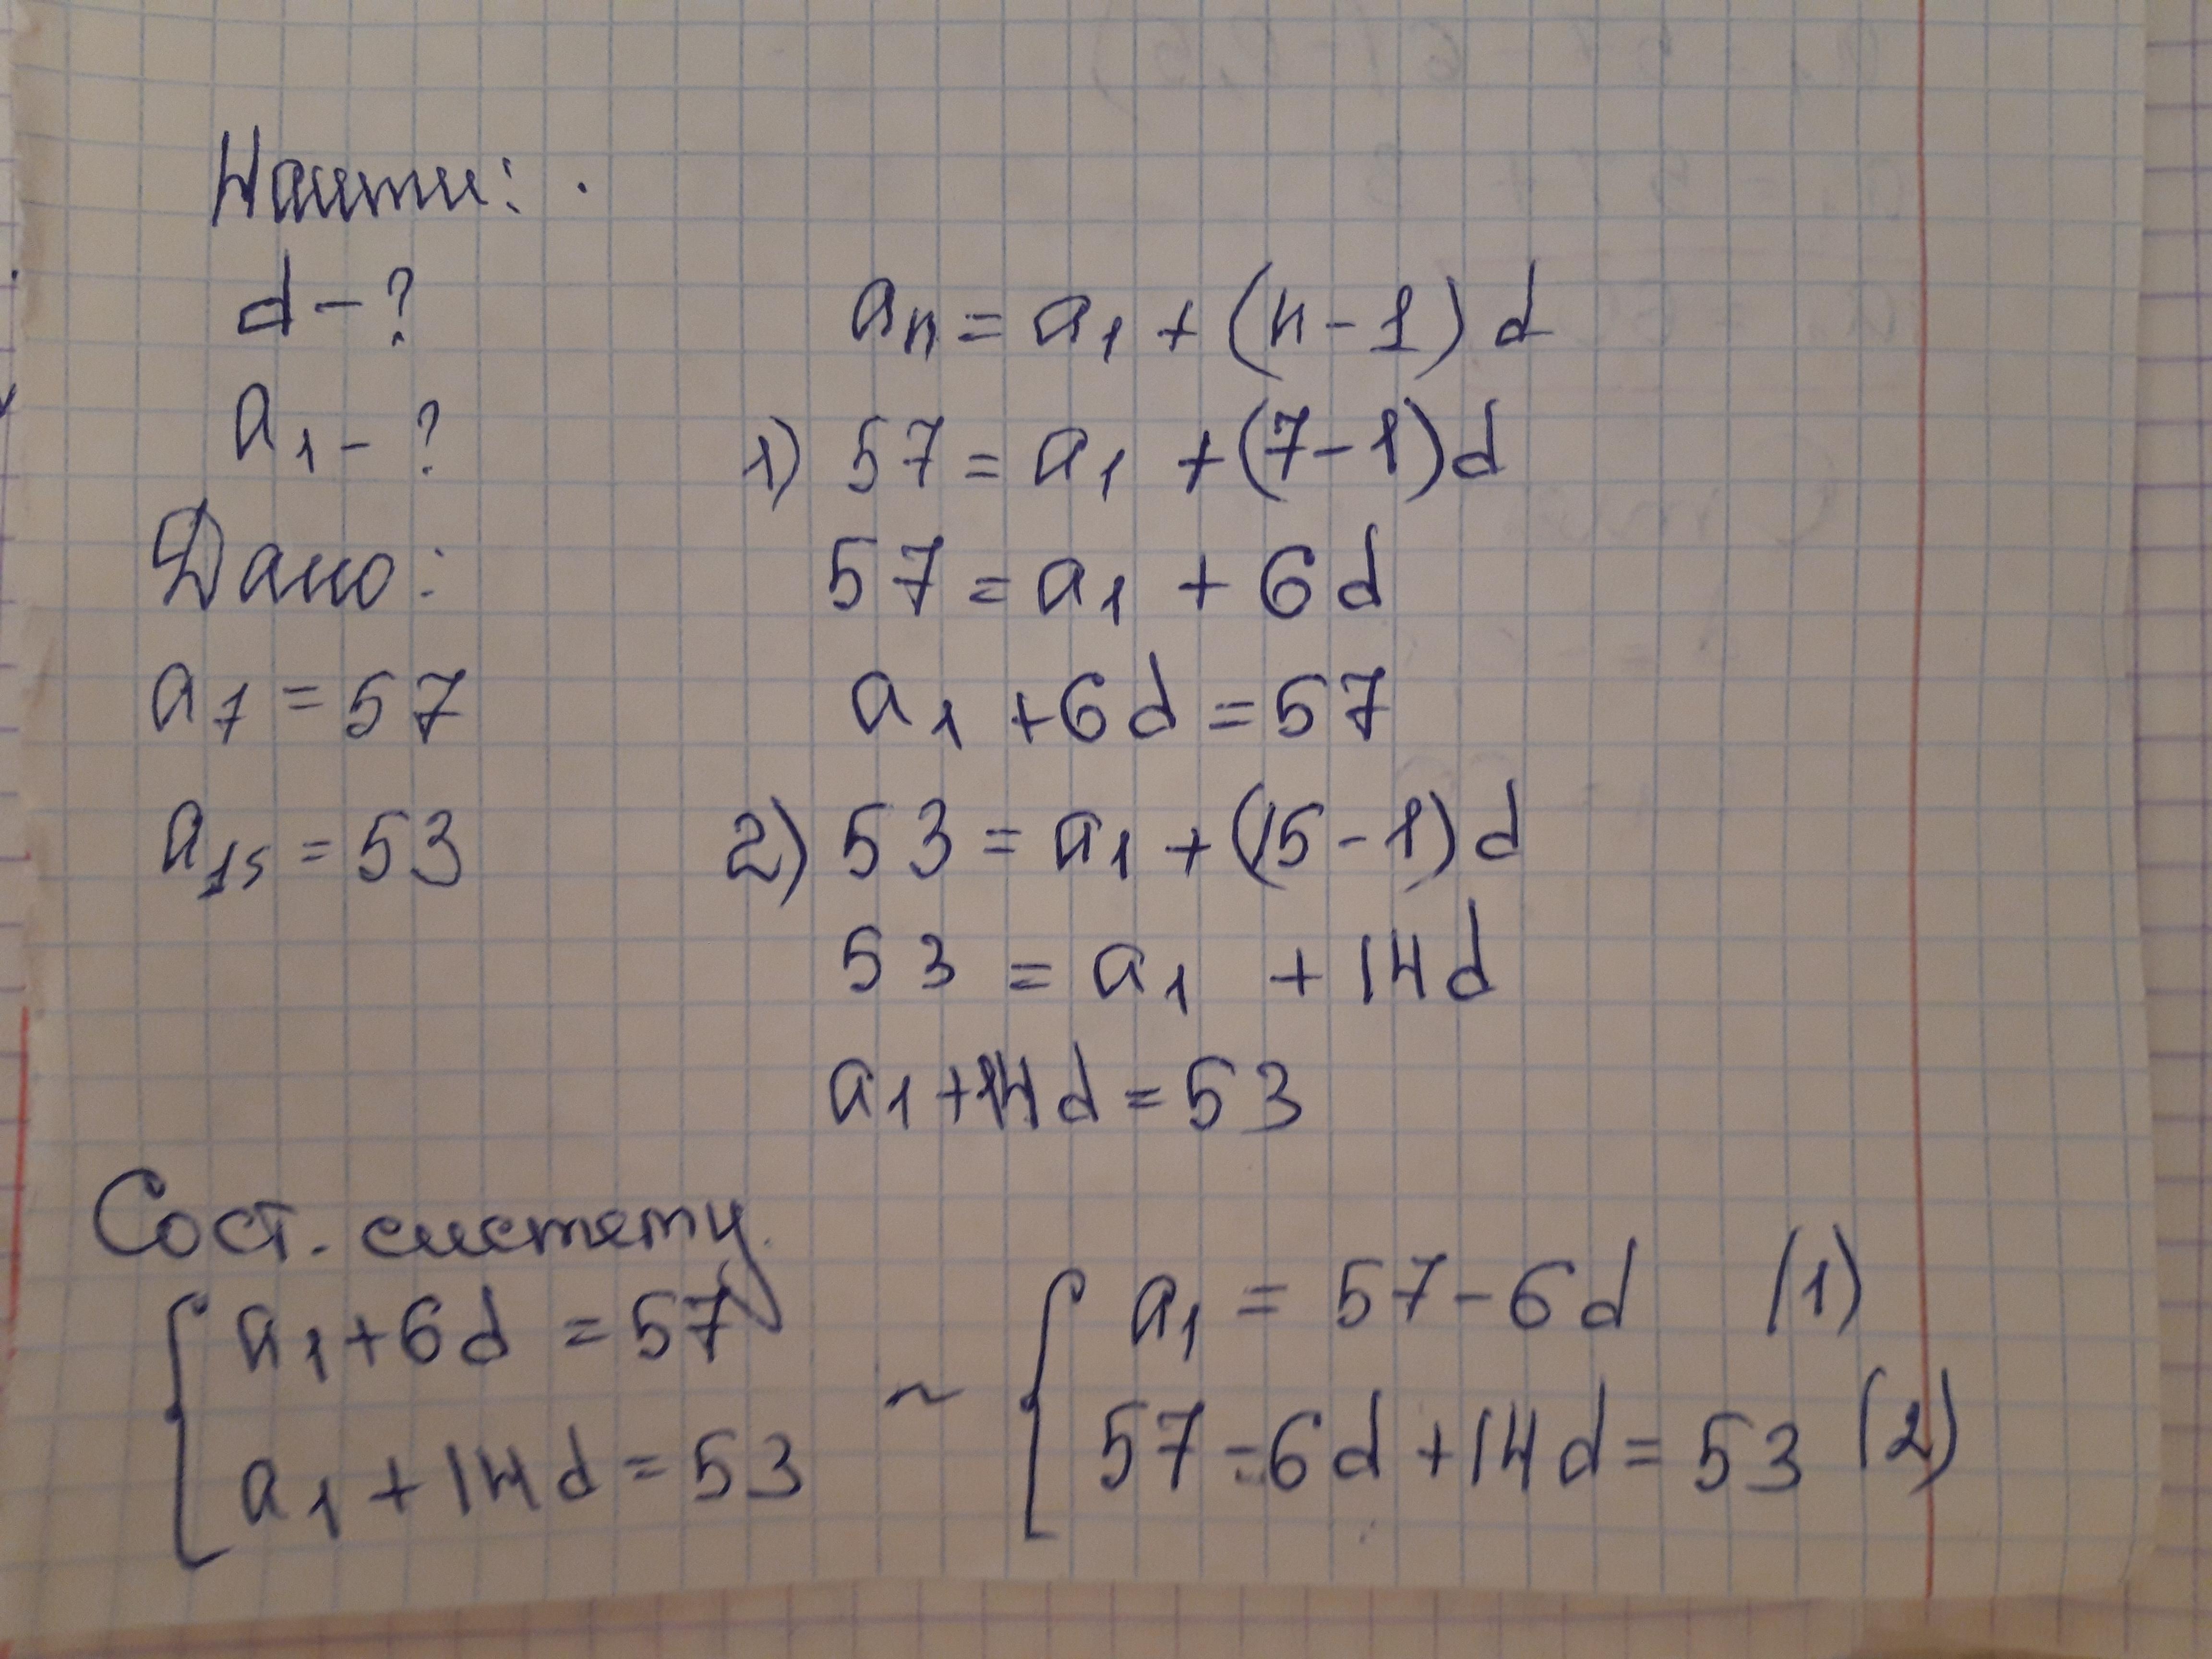 Найти:
d - ?
a₁ - ?
Дано:
a₇ = 57
a₁₅ = 53
aₙ = a₁ + (n - 1) d
1) 57 = a₁ + (7 - 1) d
57 = a₁ + 6d
a₁ + 6d = 57
2) 53 = a₁ + (15 - 1) d
53 = a₁ + 14d
a₁ + 14d = 53
Сост. систему
{ a₁ + 6d = 57
a₁ + 14d = 53
~ { a₁ = 57 - 6d (1)
57 - 6d + 14d = 53 (2)